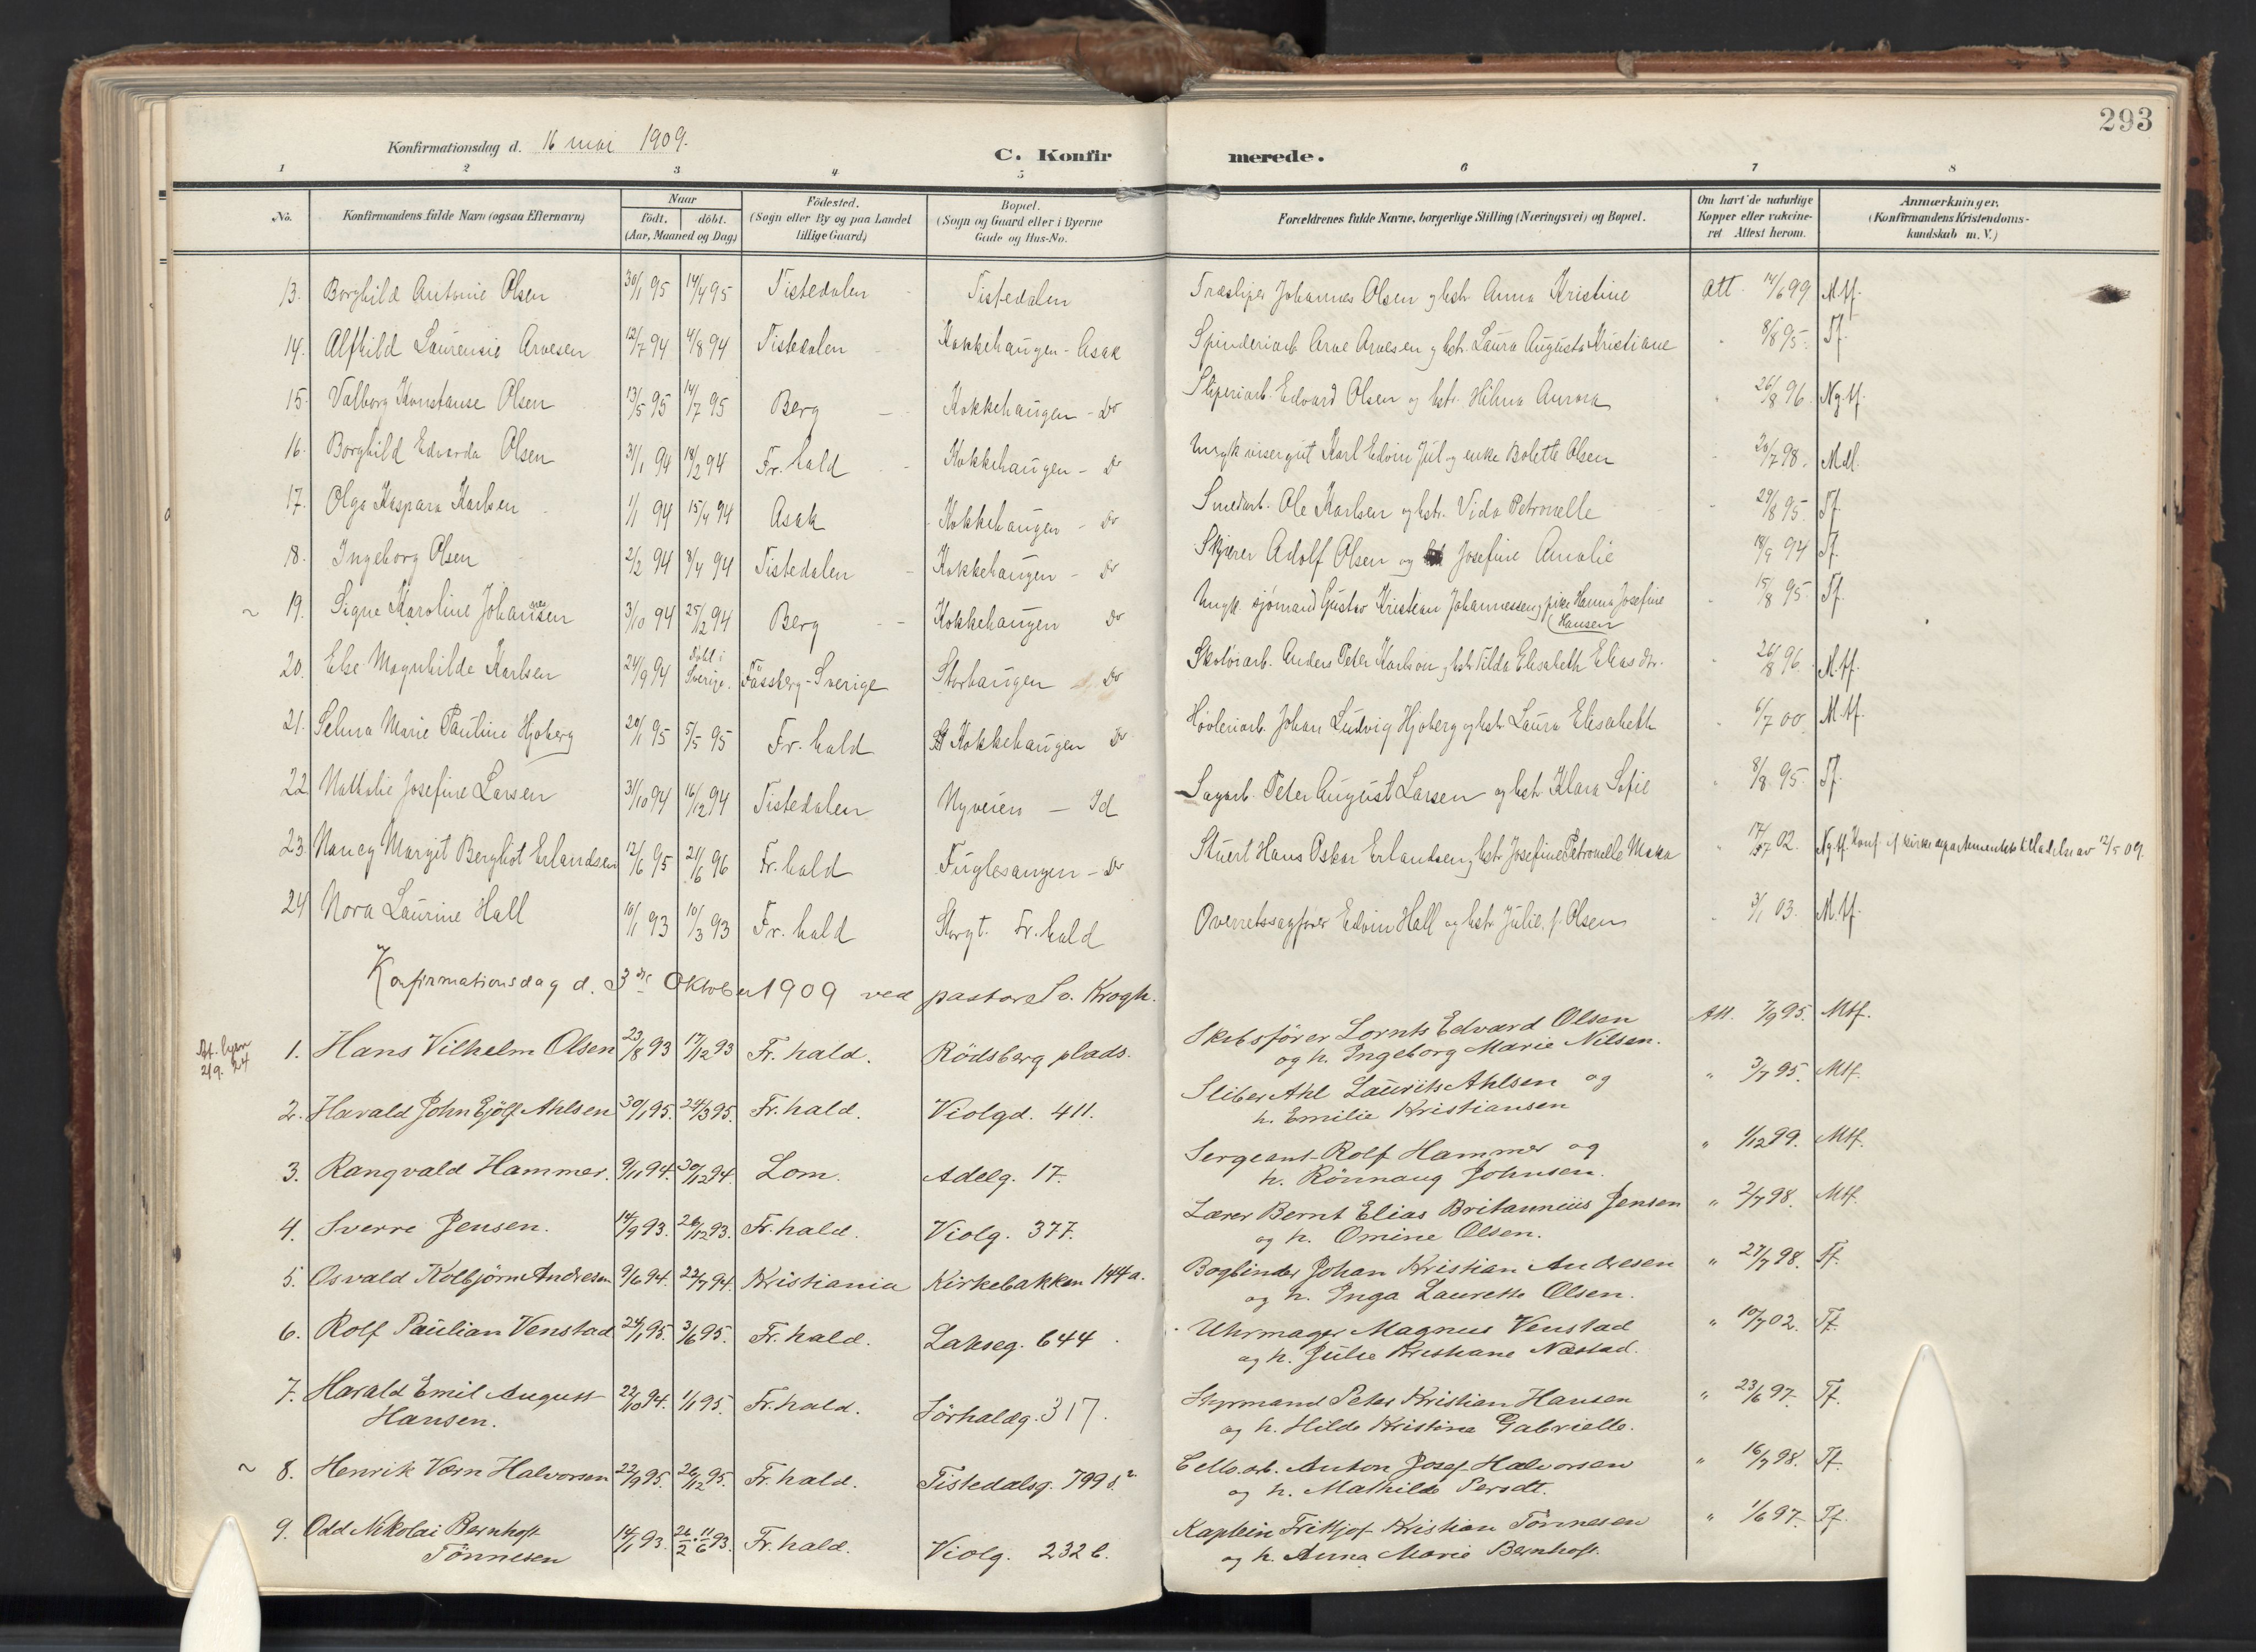 293
Konfirmationsdag d. 16 mai 1909.
C. Konfirmerede.
1 2 3 4 5 6 7 8
No. Konfirmandens fulde Navn (ogsaa Efternavn) Naar født. döbt. (Aar, Maaned og Dag) Födested. (Sogn eller By og paa Landet tillige Gaard) Bopæl. (Sogn og Gaard eller i Byerne Gade og Hus-No. Forældrenes fulde Navne, borgerlige Stilling (Næringsvei) og Bopæl. Om havt de naturlige Kopper eller vakcineret Attest herom. Anmærkninger. (Konfirmandens Kristendomskundskab m. V.)
13. Borghild Antonie Olsen 30/1 95 14/4 95 Tistedalen Tistedalen Træsliper Johannes Olsen og hstr Anna Kristine Att. 14/6 99 M.tf.
14. Alfhild Laurensie Arvesen 12/7 94 4/8 94 Tistedalen Kokkehaugen - Asak Spinderiarb. Arve Arvesen og hstr. Laura Augusta Kristiane " 8/8 95. Tf.
15. Valborg Konstanse Olsen 13/5 95 14/7 95 Berg - Kokkehaugen - Do Sliperiarb. Edvard Olsen og hstr. Hilma Aurora " 26/8 96. Ng.tf.
16. Borghild Edvarda Olsen 31/1 94 18/2 94 Fr.hald Kokkehaugen - Do Ungk. visergut Karl Edvin Jul og enke Bolette Olsen " 20/7 98. Mdl.
17. Olga Kaspara Karlsen 1/1 94 15/4 94 Asak Kokkehaugen - Do Smedarb. Ole Karlsen og hstr. Vida Petronelle " 29/8 95. Tf.
18. Ingeborg Olsen 2/2 94 8/4 94 Tistedalen Kokkehaugen - Do Skjærer Adolf Olsen og Josefine Amalie 18/9 94 Tf.
~ 19. Signe Karoline Johannesen 3/10 94 25/12 94 Berg Kokkehaugen Do Ungk. sjømand Gustav Kristian Johannessen og pike Hanna Josefine Hansen " 15/8 95. Tf.
20. Else Magnhilde Karlsen 24/9 94 Döbt i Sverige. Fässberg-Sverige Storhaugen Do Skotöiarb. Anders Peter Karlson og hstr. Tilda Elisabeth Elias dr. " 26/8 96. M.tf.
21. Selma Marie Pauline Hjoberg 20/1 95 5/5 95 Fr. hald Kokkehaugen Do Høvleriarb. Johan Ludvig Hjoberg og hstr Laura Elisabeth " 6/7 00. M.tf.
22 Nathalie Josefine Larsen 31/10 94 16/12 94 Tistedalen Nyveien - Id Sagarb. Peter August Larsen og hstr. Klara Sofie " 8/8 95. Tf.
23 Nancy Margit Bergliot Erlandsen 12/6 95 21/6 96 Fr. hald Fuglesangen - Do Stuert Hans Oskar Erlandsen og hstr Josefine Petronelle " 17/7 02. Ng.tf. Konf. af kirkedepartementets tilladelse av 12/5 09.
24 Nora Laurine Hall 10/1 93 10/3 93 Fr. hald Storgt. Fr. hald Overretssagfører Edvin Hall og hstr. Julie, f. Olsen " 3/1 03. M.tf.
Konfirmationsdag d. 3die Oktober 1909 ved pastor So. Krogh.
2/9. 24
1. Hans Vilhelm Olsen 23/8 93 17/12 93 Fr. hald. Rödsberg plads. Skibsfører Lornts Edvard Olsen
og h. Ingeborg Marie Nilsen. Att. 7/9 95. Mtf.
2. Harald John Ejölf Ahlsen 30/1 95. 24/3 95. Fr. hald. Violgd. 411. Sliber Ahl Laurits Ahlsen og
h. Emilie Kristiansen " 3/7 95. Mtf.
3. Rangvald Hammer. 9/11 94. 30/12 94. Lom. Adelg. 17. Sergeant Rolf Hammer og
h. Rönnaug Johnsen. " 1/12 99. Mtf.
4. Sverre Jensen. 14/9 93. 26/12 93. Fr. hald. Violg. 377. Lærer Bernt Elias Britannius Jensen
og h. Omine Olsen. " 2/7 98. Mtf.
5. Osvald Kolbjörn Andresen 9/6 94. 22/7 94. Kristiania Kirkebakken 144a. Bogbinder Johan Kristian Andresen
og h. Inga Laurette Olsen. " 27/7 98. Tf.
6. Rolf Paulian Venstad 24/1 95. 3/6 95. Fr. hald. Lakseg. 644 Uhrmager Magnus Venstad
og h. Julie Kristiane Næstad. " 10/7 02. Tf.
7. Harald Emil August
Hansen. 22/10 94. 1/1 95. Fr. hald. Sörhaldg. 317. Styrmand Peter Kristian Hansen
og h. Hilda Kristine Gabrielle. " 23/6 97. Tf.
~ 8. Henrik Værn Halvorsen 22/9 95. 26/12 95. Fr. hald. Tistedalsg. 799 Cello.arb. Anton Josef Halvorsen
og h. Mathilde Persdt. " 16/7 98. Tf.
9. Odd Nikolai Bernhoft
Tönnesen 14/1 93. 26/2 11/6 93. Fr. hald. Violg. 232 b. Kaptein Frithjof Kristian Tönnesen
og h. Anna Marie Bernhoft. " 1/6 97. Tf.